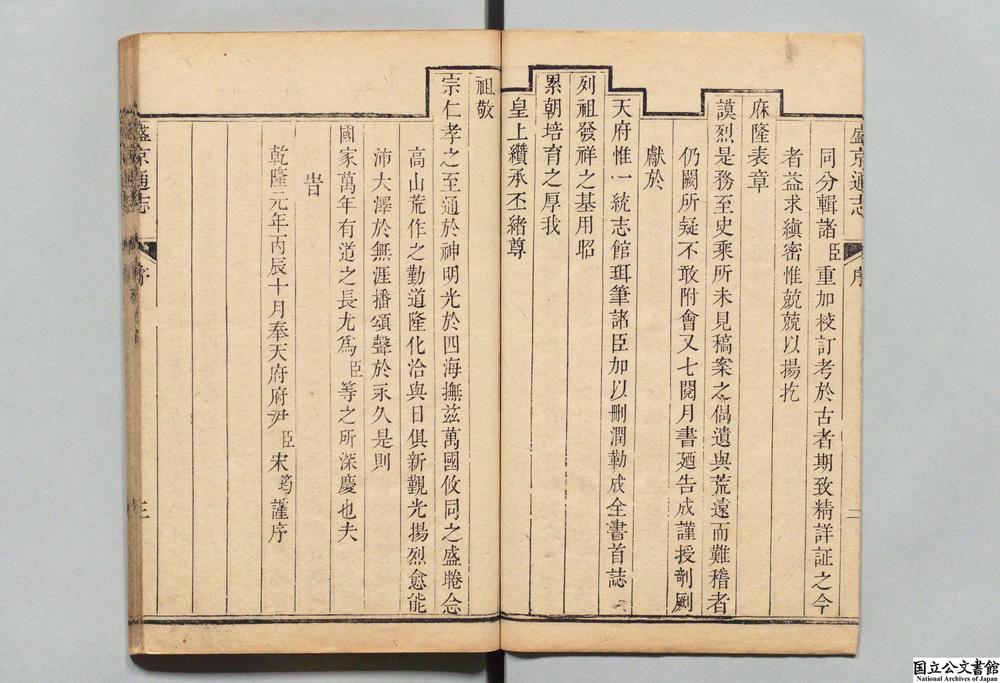 盛京通志
序
二
同分輯諸臣重加校訂考於古者期致精詳証之今
者益求縝密惟兢兢以揚扢
庥隆表章
謨烈是務至史乘所未見稿案之偶遺與荒遠而難稽者
仍闕所疑不敢附會又七閱月書廼告成謹授剞劂
獻於
天府惟一統志館珥筆諸臣加以刪潤勒成全書首誌
列祖發祥之基用昭
累朝培育之厚我
皇上纘承丕緒尊
祖敬
宗仁孝之至通於神明光於四海撫茲萬國攸同之盛睠念
高山荒作之勤道隆化洽與日俱新觀光揚烈愈能
沛大澤於無涯播頌聲於永久是則
國家萬年有道之長尤為臣等之所深慶也夫
旹
乾隆元年丙辰十月奉天府府尹臣宋筠謹序
盛京通志
序
三
国立公文書館
National Archives of Japan